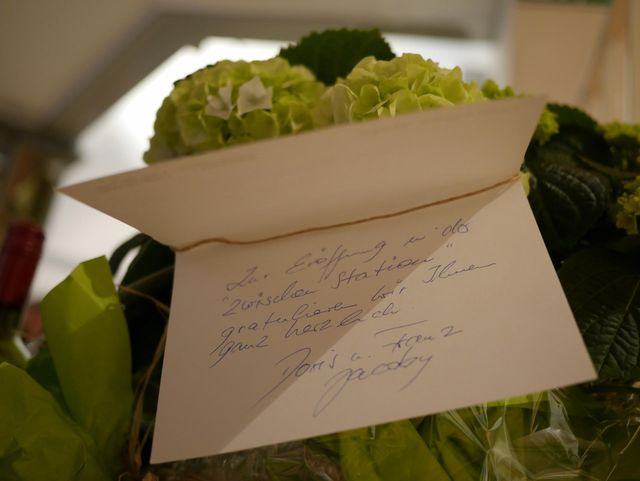 Zur Eröffnung u. der
"Zwischen Station"
gratulieren wir Ihnen
ganz herzlich.
Doris u. Franz
Jacoby